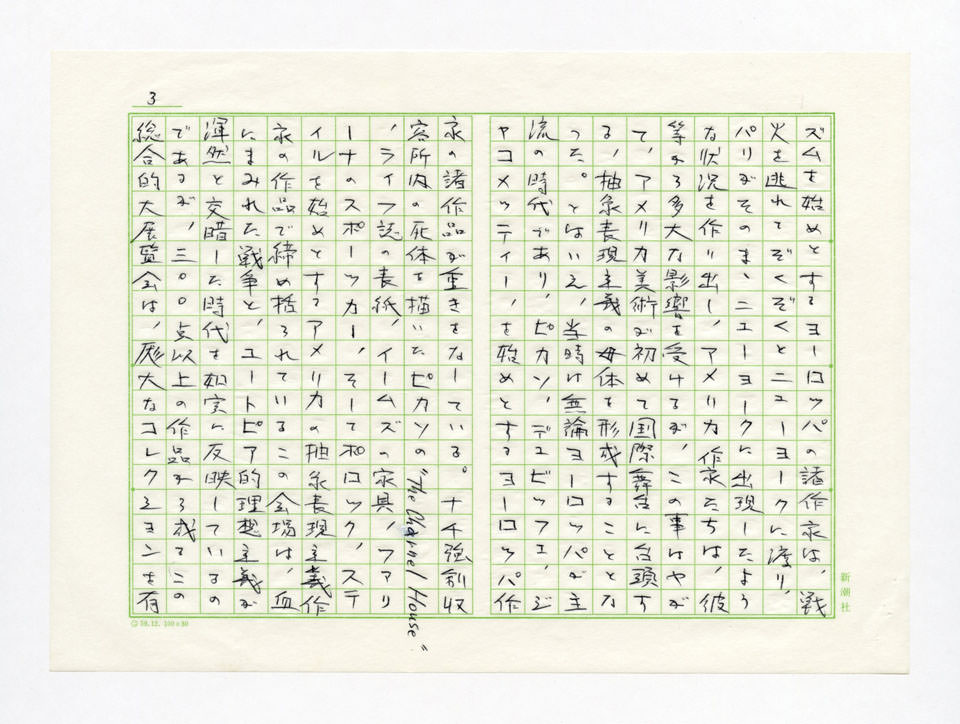 3
ズムを始めとするヨーロッパの諸作家は、戦
火を逃れてぞくぞくとニューヨークに渡り、
パリがそのまゝニューヨークに出現したよう
な状況を作り出し、アメリカ作家たちは、彼
等から多大な影響を受けるが、この事はやが
て、アメリカ美術が初めて国際舞台に台頭す
る、抽象表現主義の母体を形成することとな
った。とはいえ、当時は無論ヨーロッパが主
流の時代であり、ピカソ、デュビッフェ、ジ
ャコメッティー、を始めとするヨーロッパ作
家の諸作品が重きをなしている。ナチ強制収
容所内の死体を描いたピカソの"The Charnel House"
、ライフ誌の表紙、イームズの家具、ファリ
ーナのスポーツカー、そしてポロック、ステ
ィルを始めとするアメリカの抽象表現主義作
家の作品で締め括られているこの会場は、血
にまみれた戦争と、ユートピア的理想主義が
渾然と交暗した時代を如実に反映しているの
であるが、三〇〇点以上の作品から成るこの
総合的大展覧会は、厖大なコレクションを有
新潮社
59.12. 100×80